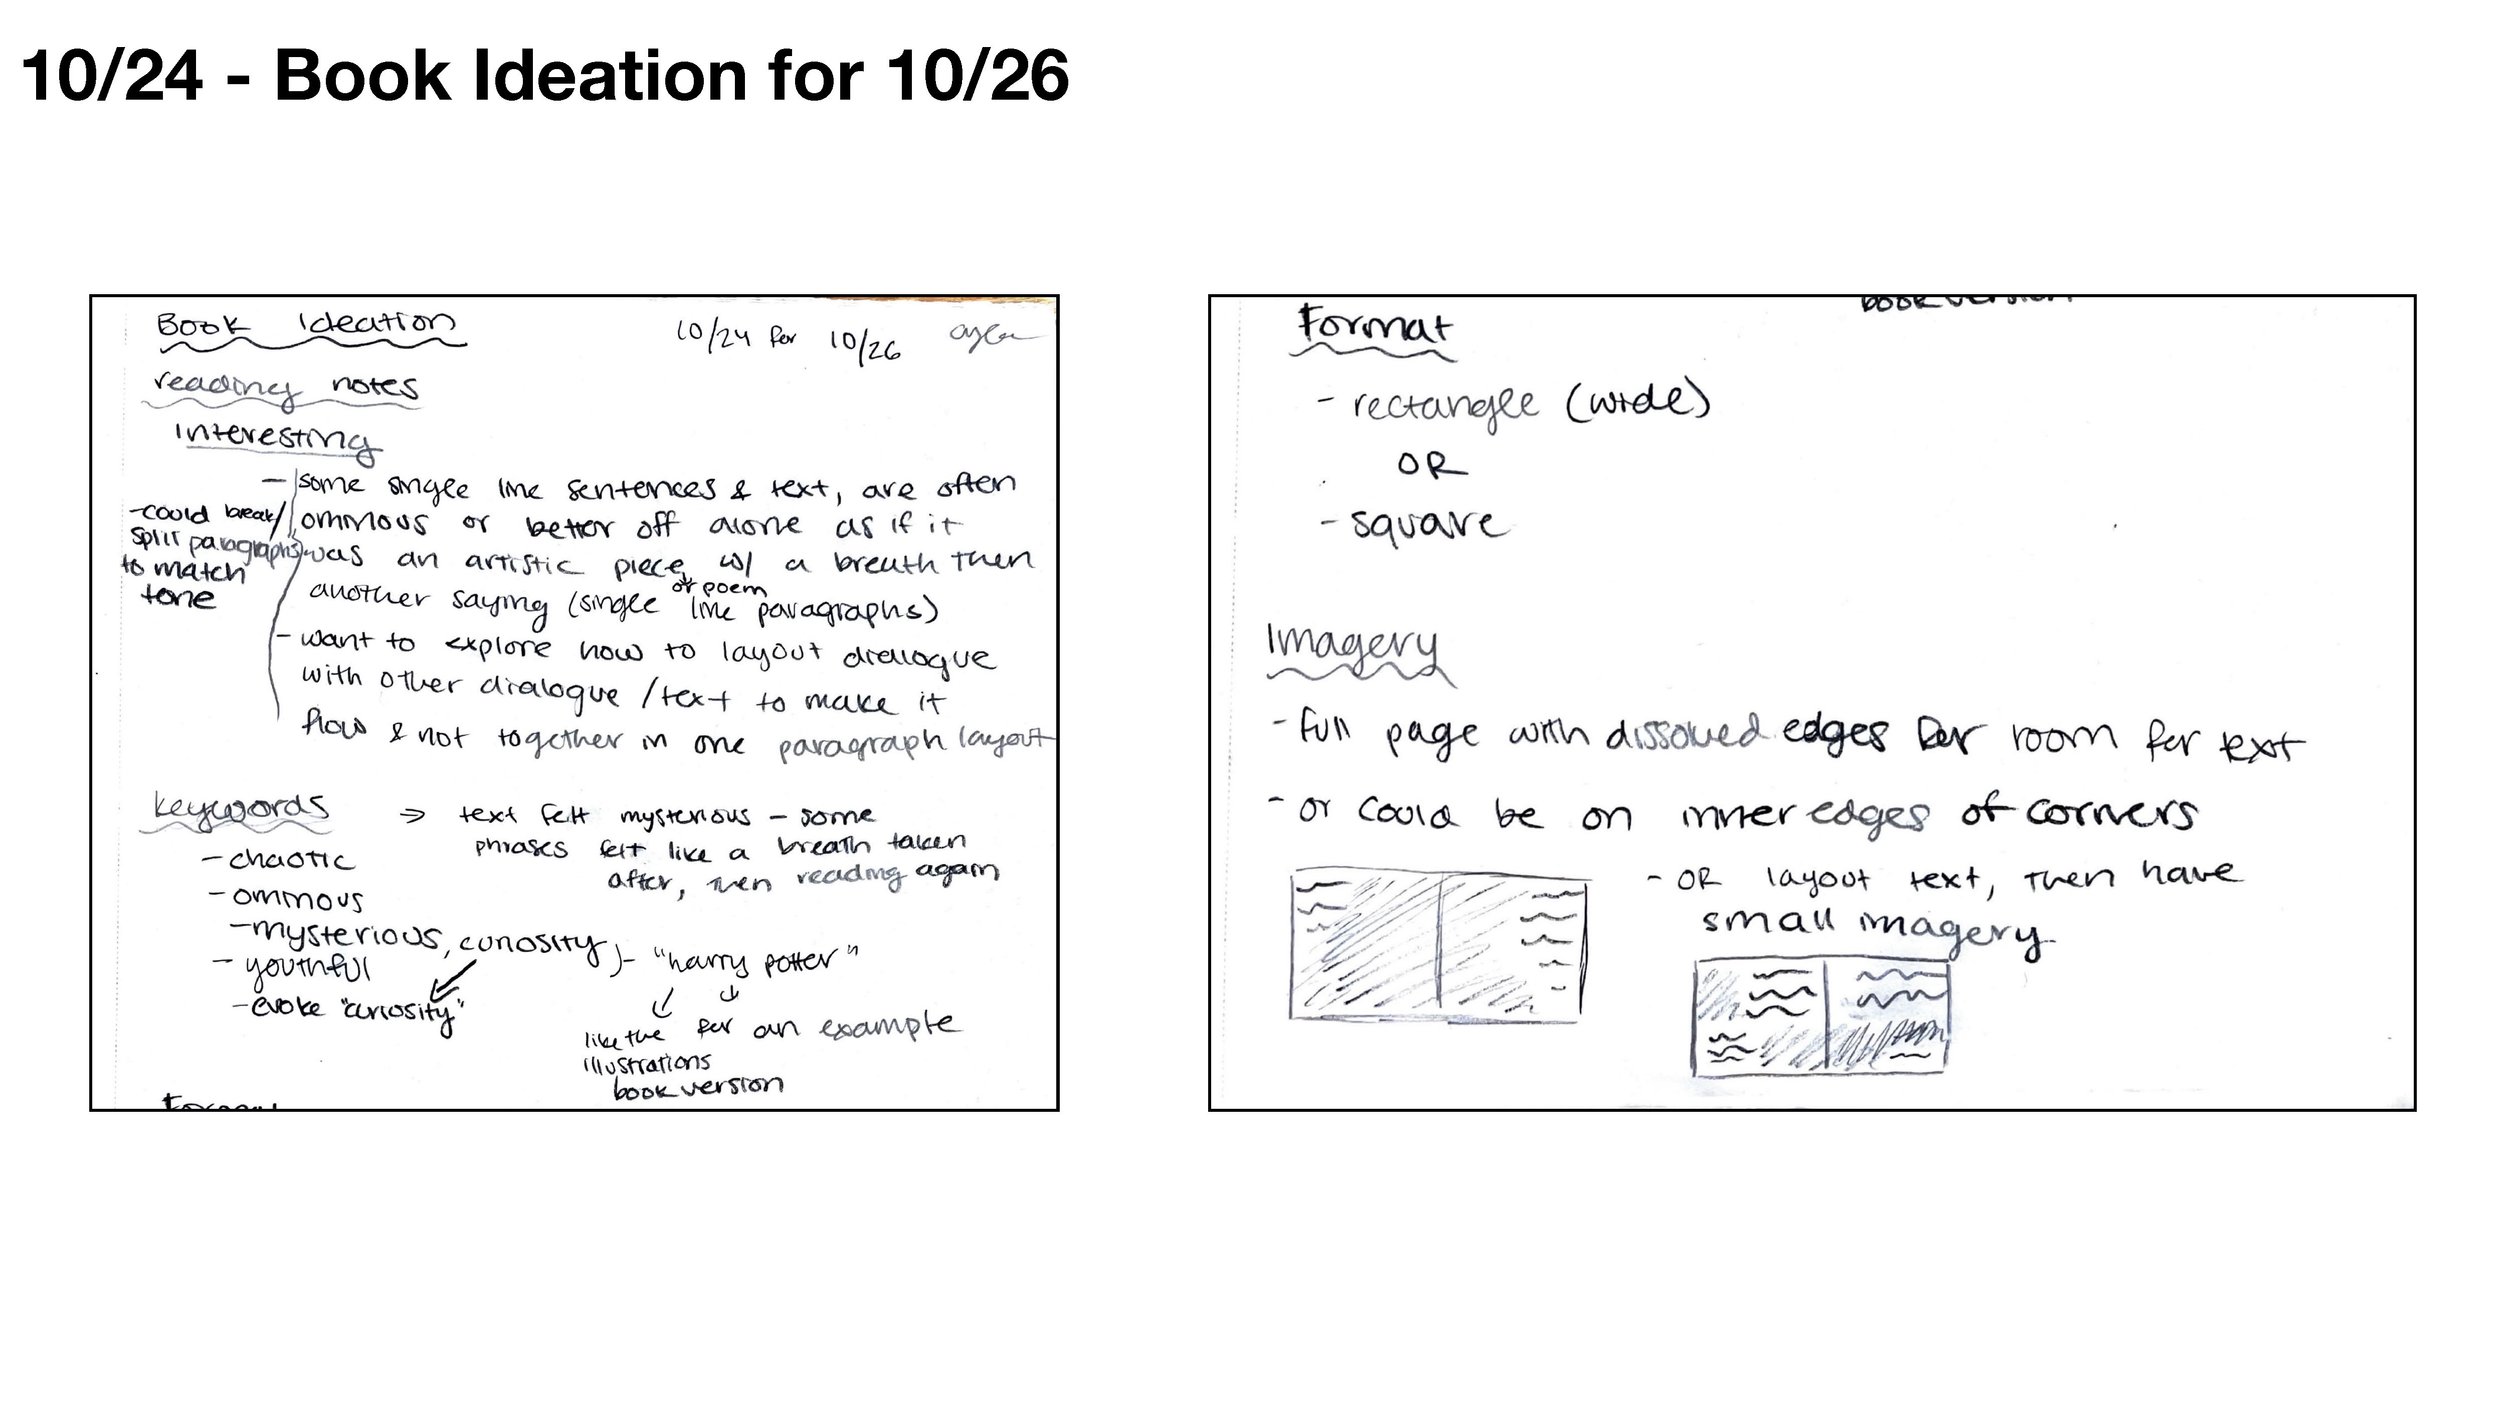 10/24 - Book Ideation for 10/26
Book Ideation
10/24 for 10/26
reading notes
Interesting
- some single line sentences & text, are often
ominous or better off alone as if it
was an artistic piece w/ a breath then
or poem
another saying (single line paragraphs)
- could break/
split paragraphs
to match
tone
- want to explore how to layout dialogue
with other dialogue / text to make it
flow & not together in one paragraph layout
keywords
⇒ text felt mysterious - some
phrases felt like a breath taken
after, then reading again
- chaotic
- ominous
- mysterious, curiosity
- youthful
- evoke "curiosity"
- "harry potter"
for an example
like the
illustrations
book version
book version
Format
- rectangle (wide)
OR
- square
Imagery
- full page with dissolved edges for room for text
- or could be on inner edges of corners
- OR layout text, then have
small imagery.